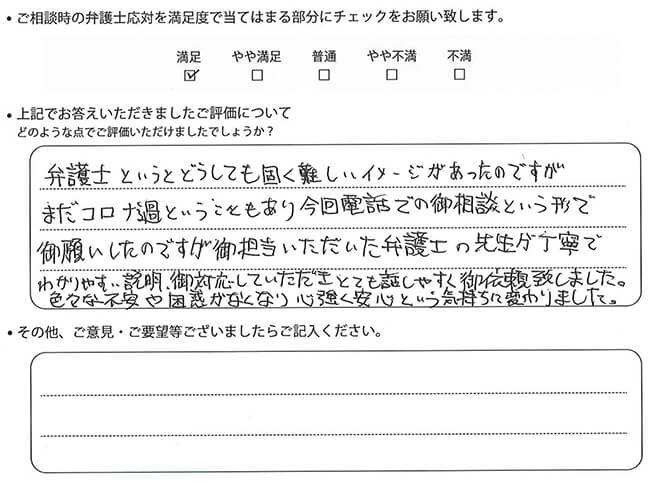 • ご相談時の弁護士応対を満足度で当てはまる部分にチェックをお願い致します。
満足 やや満足 普通 やや不満 不満
☑ □ □ □ □
• 上記でお答えいただきましたご評価について
どのような点でご評価いただけましたでしょうか？
弁護士というとどうしても固く難しいイメージがあったのですが
まだコロナ過ということもあり今回電話での御相談という形で
御願いしたのですが御担当いただいた弁護士の先生が丁寧で
わかりやすい説明、御対応していただきとても話しやすく御依頼致しました。
色々な不安や困惑がなくなり心強く安心という気持ちに変わりました。
• その他、ご意見・ご要望等ございましたらご記入ください。